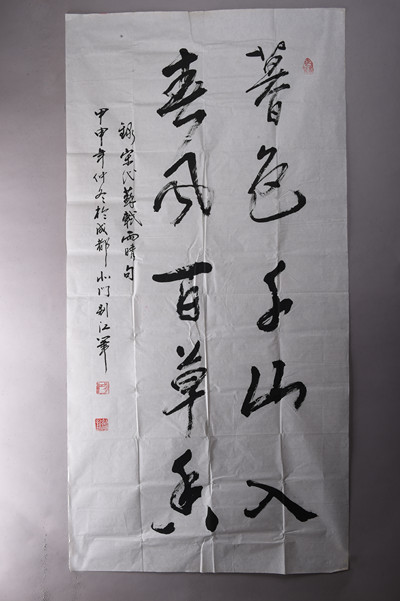 暮色千山入
春风百草香
录宋代苏轼雨晴句
甲申年仲冬於成都